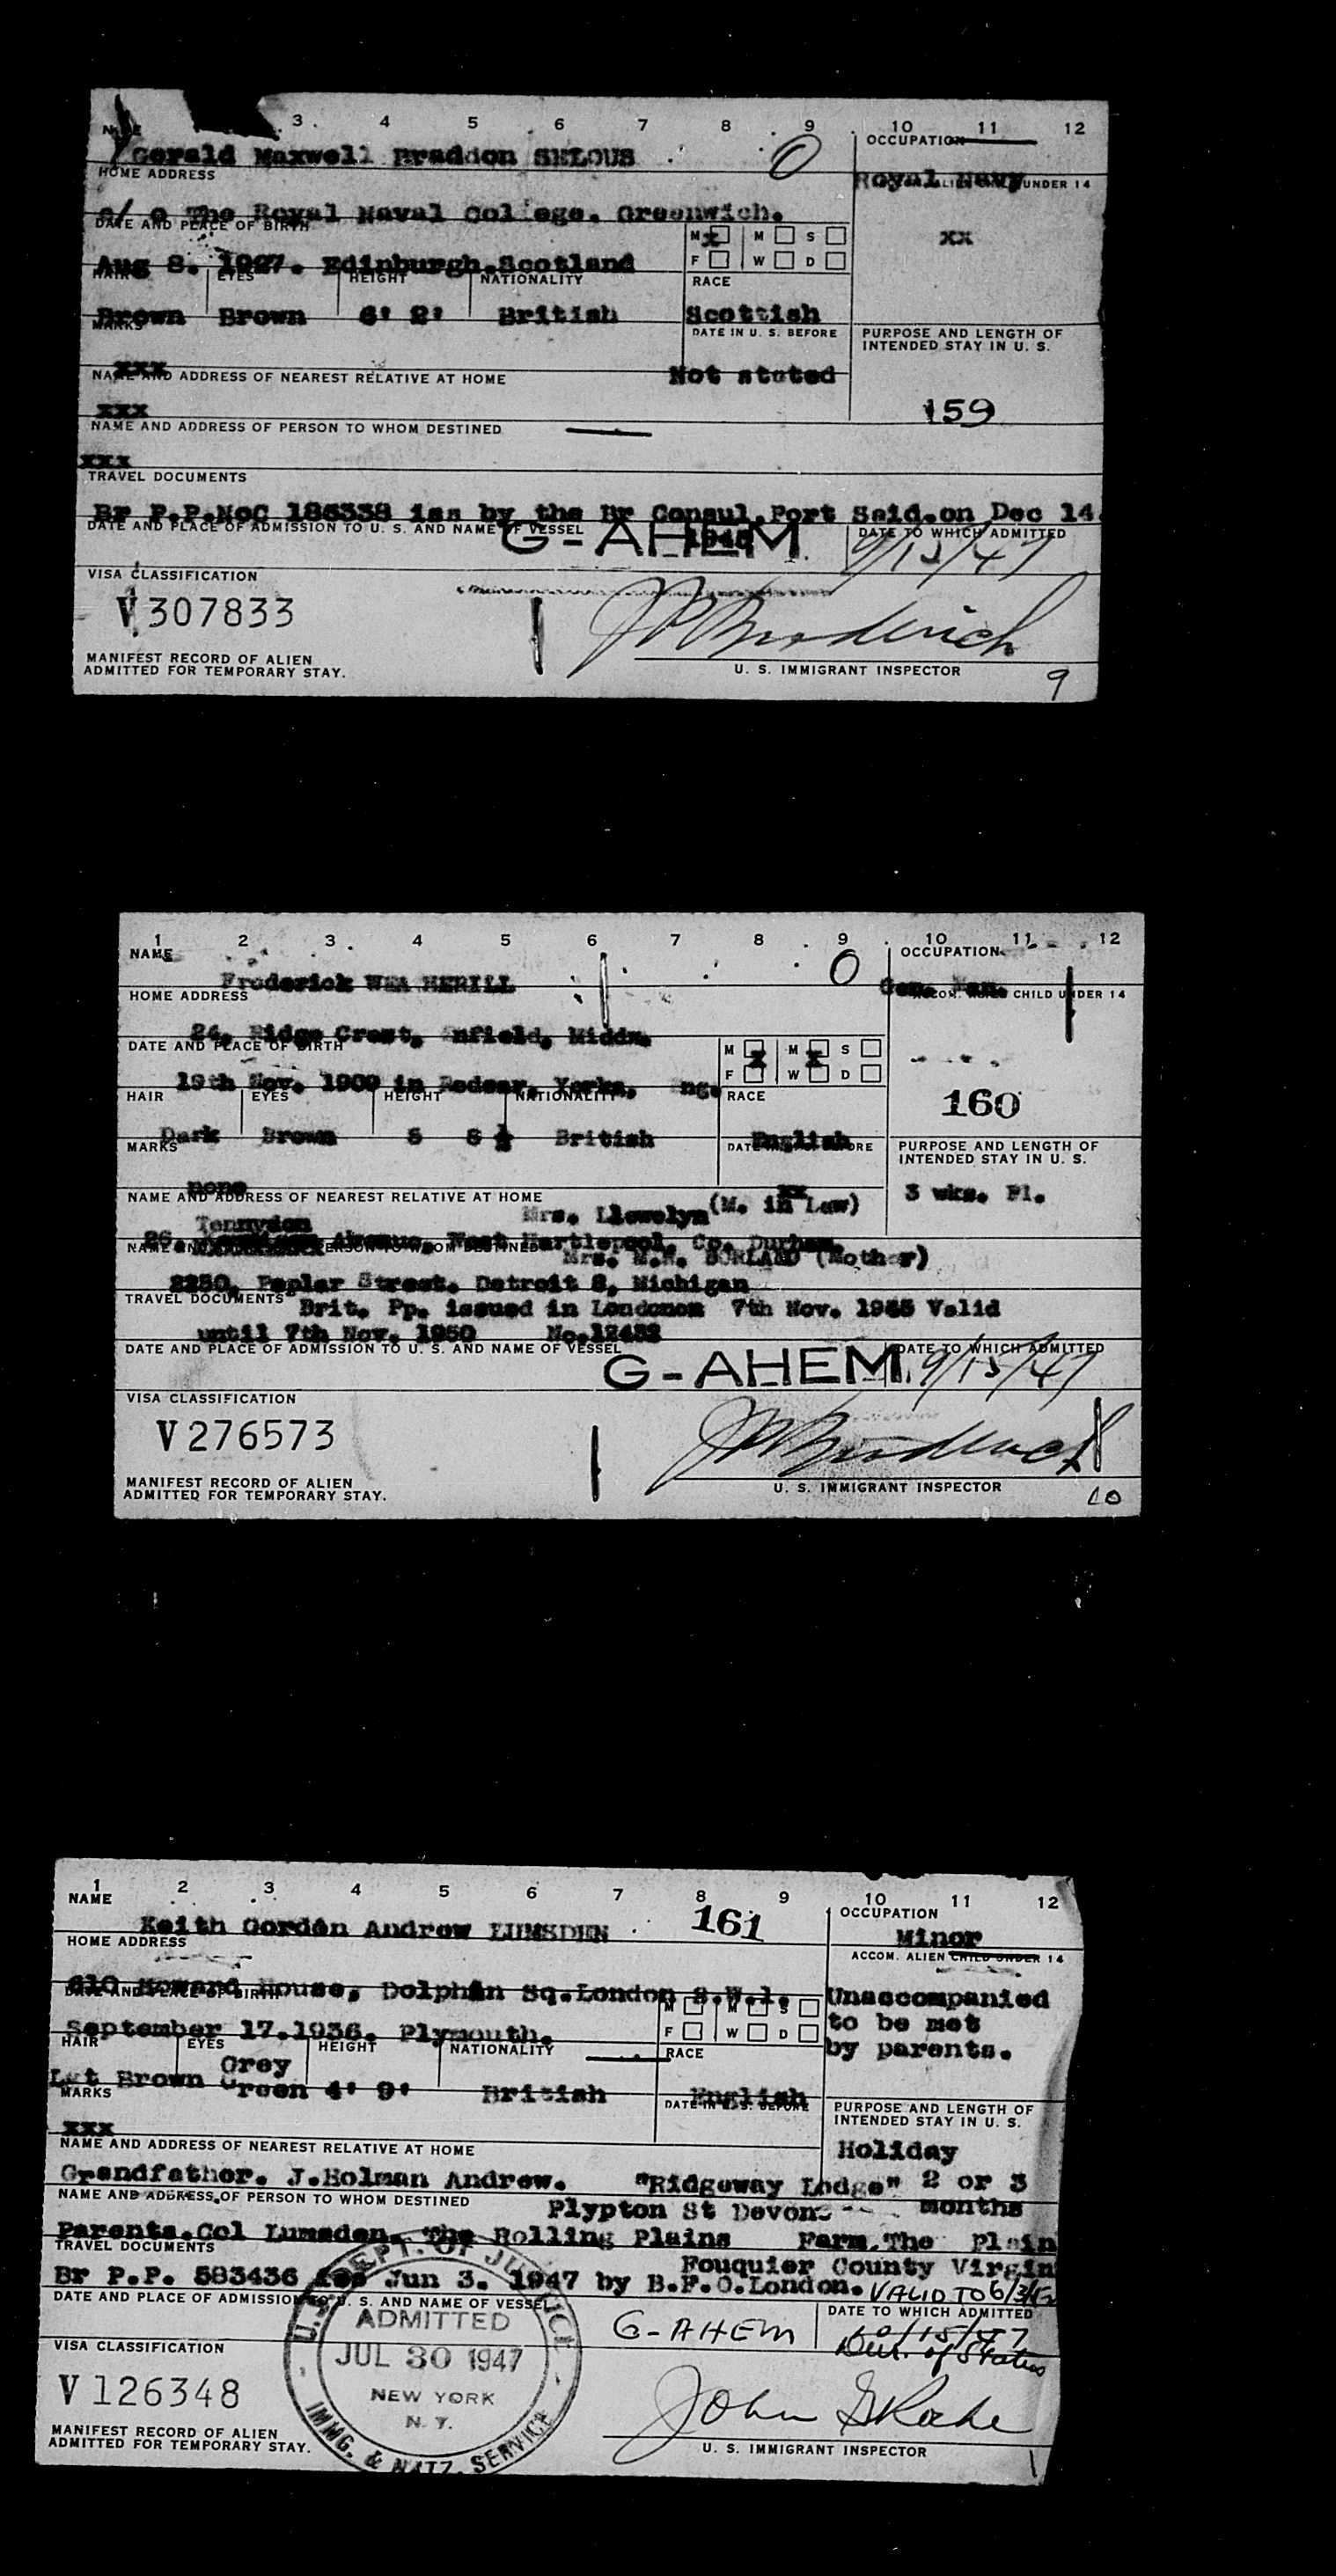 NAME 3 4 5 6 7 8 9 10 11 12
OCCUPATION
Gerald Maxwell Braddon SELOUS O
HOME ADDRESS
Royal Navy
UNDER 14
c/ o The Royal Naval College. Greenwich.
DATE AND PLACE OF BIRTH
M x M S
xx
F W D
Aug 8. 1927. Edinburgh.Scotland
HAIR EYES HEIGHT NATIONALITY RACE
Brown Brown 6' 2' British Scottish
MARKS DATE IN U. S. BEFORE PURPOSE AND LENGTH OF
INTENDED STAY IN U. S.
xxx Not stated
NAME AND ADDRESS OF NEAREST RELATIVE AT HOME
xxx 159
NAME AND ADDRESS OF PERSON TO WHOM DESTINED
xxx
TRAVEL DOCUMENTS
Br P.P.NoC 186339 iss by the Br Consul.Port Said.on Dec 14
DATE AND PLACE OF ADMISSION TO U. S. AND NAME OF VESSEL DATE TO WHICH ADMITTED
G-AHEM. 9/15/47
VISA CLASSIFICATION
V307833
MANIFEST RECORD OF ALIEN
ADMITTED FOR TEMPORARY STAY.
U. S. IMMIGRANT INSPECTOR
9
1 2 3 4 5 6 7 8 9 10 11 12
NAME OCCUPATION
Frederick WEA HERILL O Gen. Man.
HOME ADDRESS CHILD UNDER 14
24, Ridge Crest, nfield, Middx.
DATE AND PLACE OF BIRTH
M x M x S
F W D
19th Nov. 1909 in Redcar, Yorks, ng.
HAIR EYES HEIGHT NATIONALITY RACE
160
Dark Brown 5 8 ½ British English
MARKS PURPOSE AND LENGTH OF
INTENDED STAY IN U. S.
none xx
NAME AND ADDRESS OF NEAREST RELATIVE AT HOME
3 wks. Pl.
Mrs. Llewelyn (M. in Law)
Tennyson
26, Avenue, West Hartlepool, Co. Durham.
Mrs. M.N. BURLAND (Mother)
2250, Poplar Street. Detroit 8, Michigan
TRAVEL DOCUMENTS Brit. Pp. issued in London 7th Nov. 1945 Valid
until 7th Nov. 1950 No.12432
DATE AND PLACE OF ADMISSION TO U. S. AND NAME OF VESSEL DATE TO WHICH ADMITTED
G-AHEM. 9/15/47
VISA CLASSIFICATION
V276573
MANIFEST RECORD OF ALIEN
ADMITTED FOR TEMPORARY STAY.
U. S. IMMIGRANT INSPECTOR
10
1 2 3 4 5 6 7 8 9 10 11 12
NAME OCCUPATION
Keith Gordon Andrew LUMSDEN 161 Minor
HOME ADDRESS ACCOM. ALIEN CHILD UNDER 14
610 Howard House, Dolphin Sq.London S.W.1. Unaccompanied
DATE AND PLACE OF BIRTH M M S
to be met
September 17.1936. Plymouth. F W D
by parents.
HAIR EYES HEIGHT NATIONALITY RACE
Grey
Lgt Brown Green 4' 9' British English
MARKS DATE IN U. S. BEFORE PURPOSE AND LENGTH OF
INTENDED STAY IN U. S.
xxx
NAME AND ADDRESS OF NEAREST RELATIVE AT HOME
Holiday
Grandfather. J.Holman Andrew. "Ridgeway Lodge" 2 or 3
NAME AND ADDRESS OF PERSON TO WHOM DESTINED
Plypton St Devon. months
Parents.Col Lumsden. The Rolling Plains Farm.The Plain
TRAVEL DOCUMENTS Fouquier County Virgin
Br P.P. 583436 iss Jun 3. 1947 by B.F.O.London. VALID TO 6/3/52
DATE AND PLACE OF ADMISSION TO U. S. AND NAME OF VESSEL DATE TO WHICH ADMITTED
G-AHEM 10/15/47
Dur. of Status
U.S. DEPT. OF JUSTICE
ADMITTED
JUL 30 1947
NEW YORK
N. Y.
IMMG. & NATZ. SERVICE
VISA CLASSIFICATION
V126348
MANIFEST RECORD OF ALIEN
ADMITTED FOR TEMPORARY STAY.
U. S. IMMIGRANT INSPECTOR
1